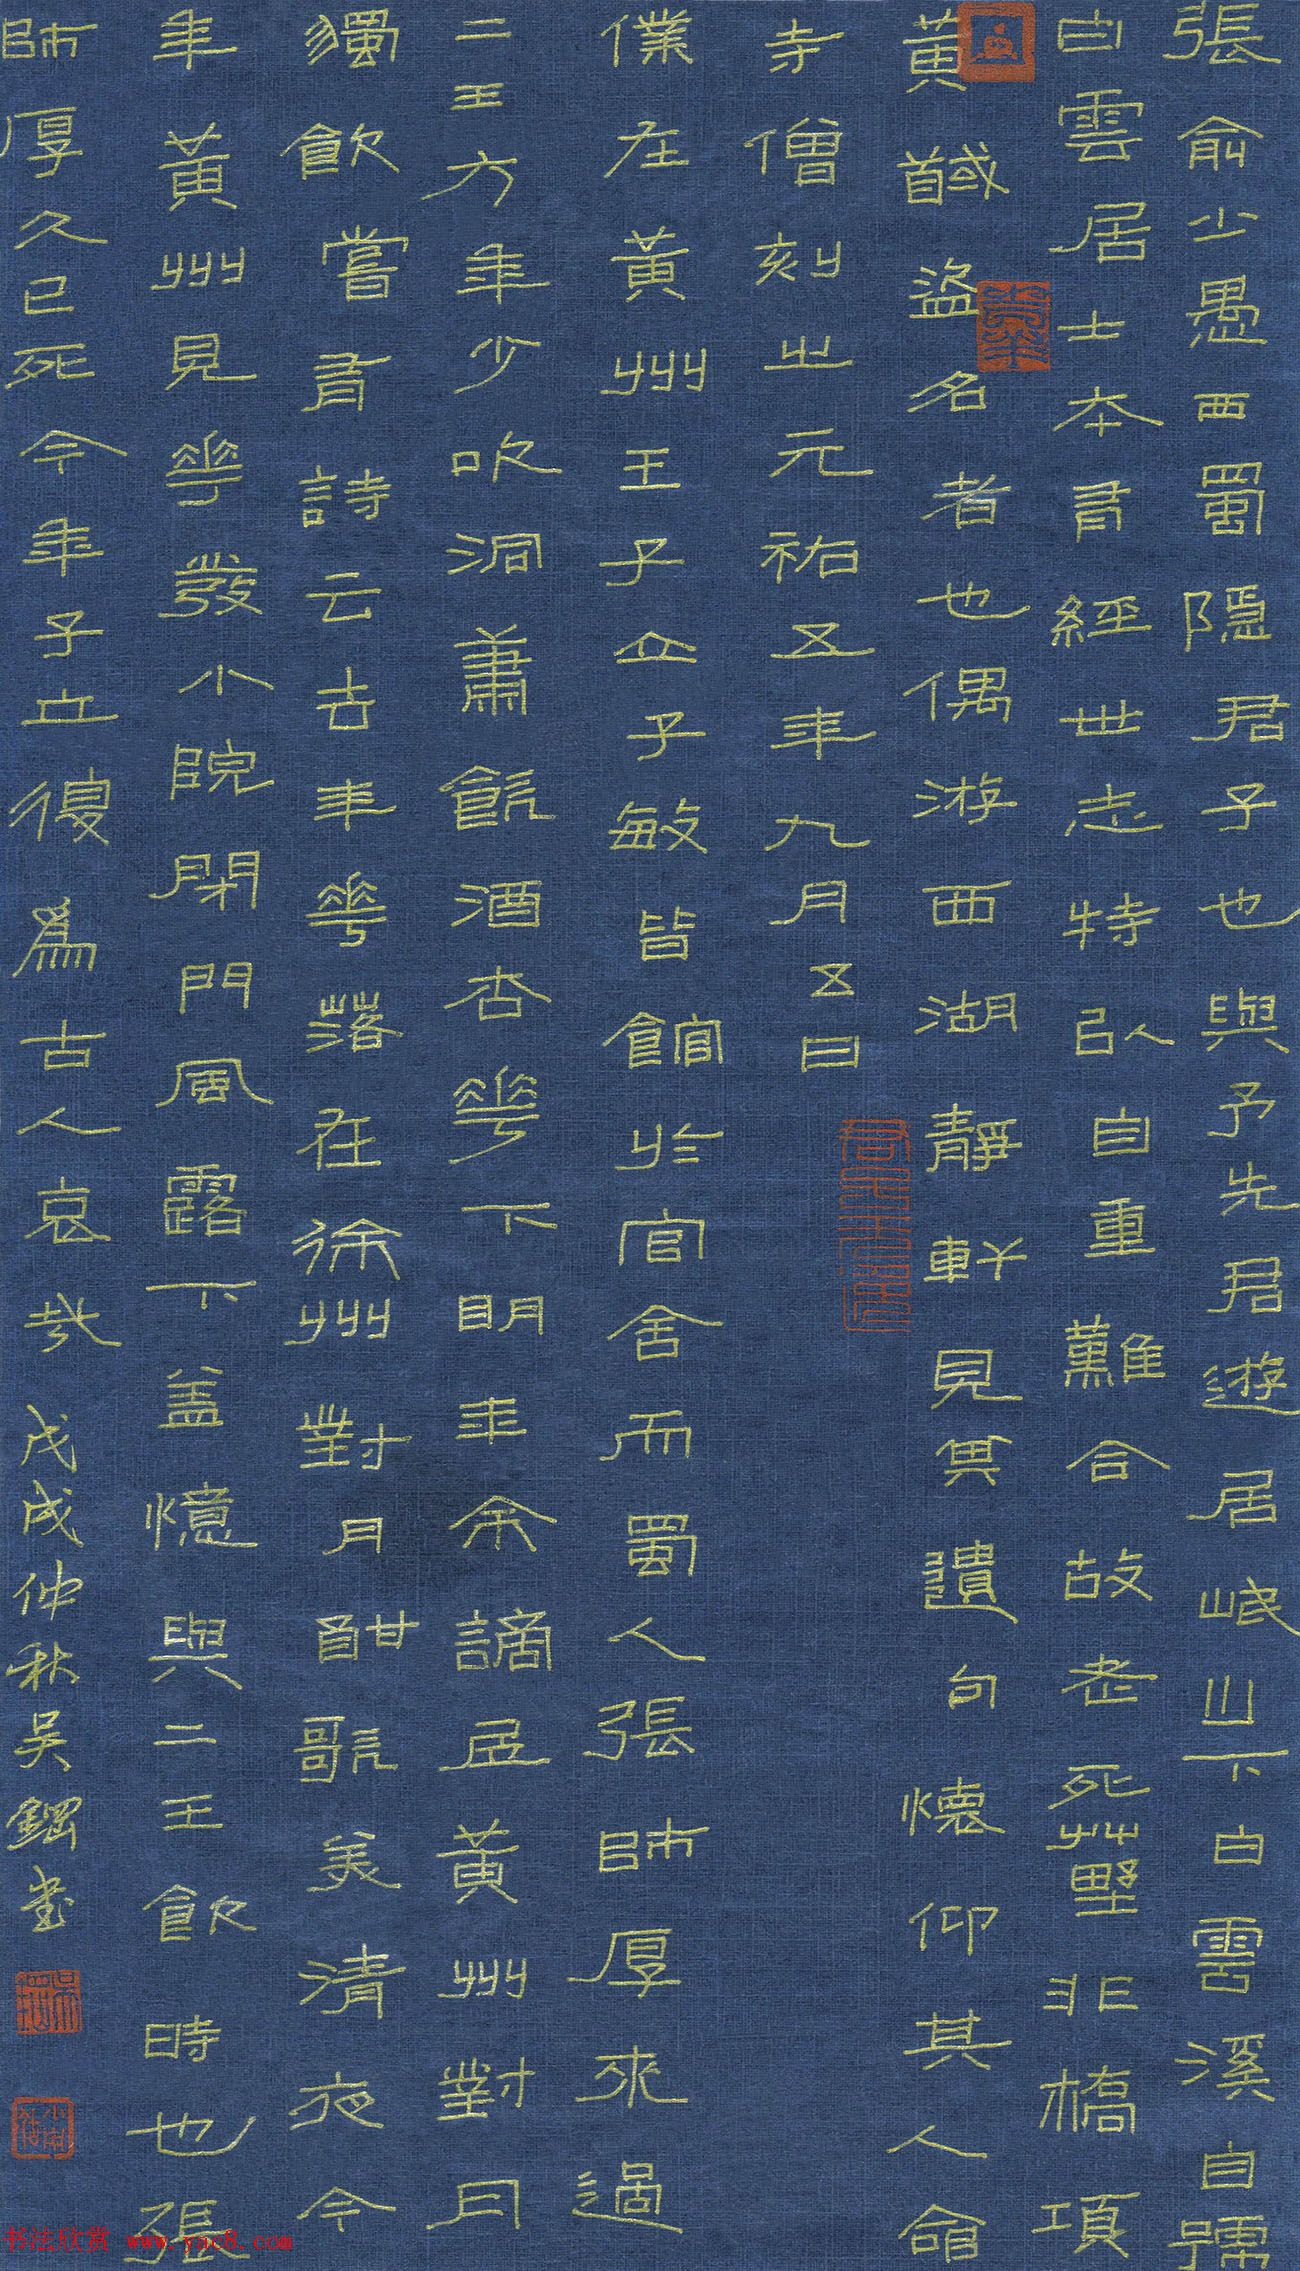 張俞少愚西蜀隱君子也與予先君遊居岷山下白雲溪自號
白雲居士本有經世志特以自重難合故老死草野非槁項
黃馘盜名者也偶游西湖靜軒見其遺句懷仰其人命
寺僧刻之元祐五年九月五日
僕在黃州王子立子敏皆館於官舍而蜀人張師厚來過
二王方年少吹洞簫飲酒杏花下明年余謫居黃州對月
獨飲嘗有詩云去年花落在徐州對月酣歌美清夜今
年黃州見花發小院閉門風露下蓋憶與二王飲時也張
師厚久已死今年子立復為古人哀哉
戊戌仲秋吳鋼書
书法欣赏 www.yac8.com